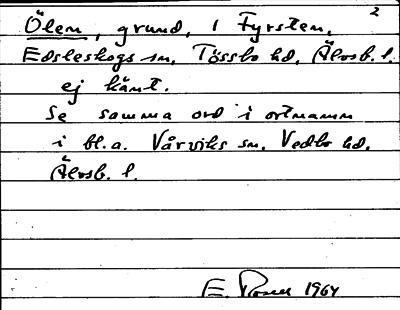 2
Ölem, grund, i Fyrsten,
Edsleskogs sn, Tössbo hd, Älvsb. l.
ej känt.
Se samma ord i ortnamn
i bl.a. Vårviks sn, Vedbo hd,
Älvsb. l.
E. 1964